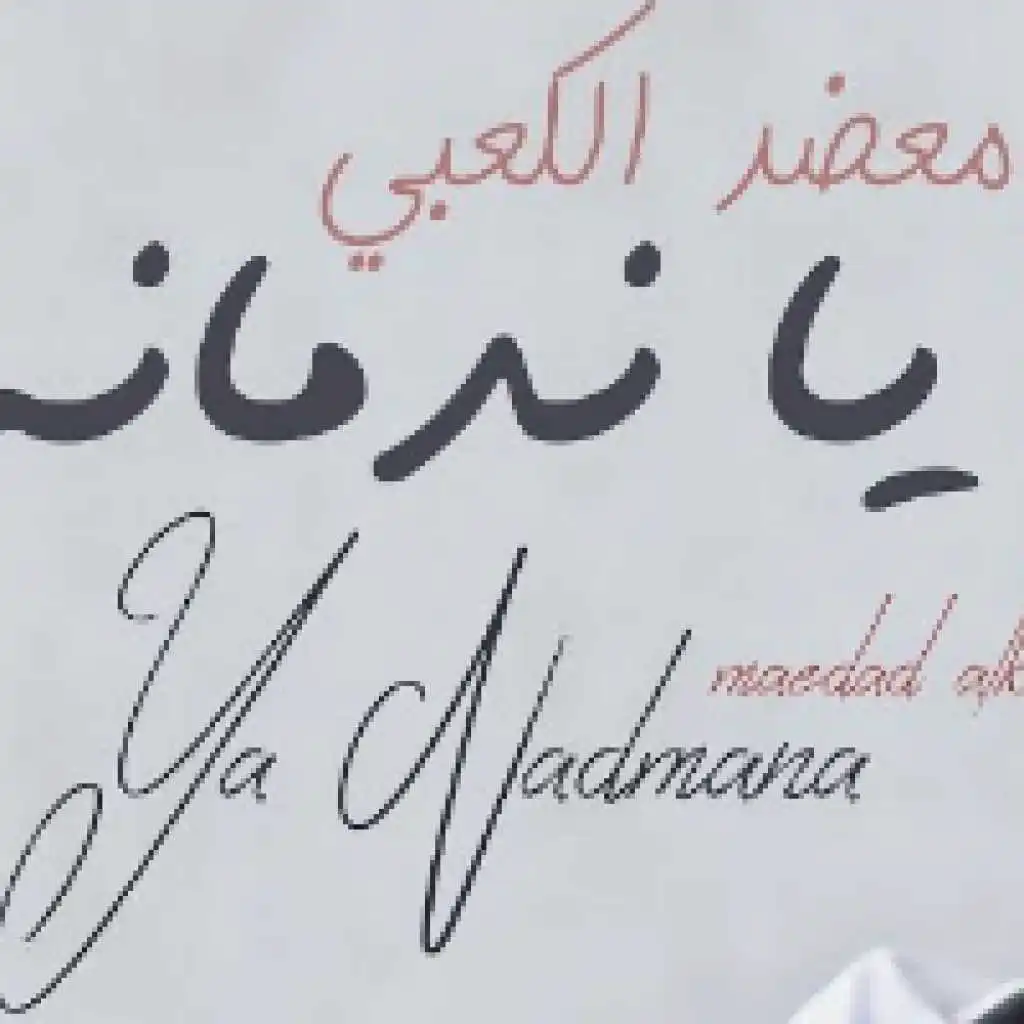 معضد الكعبي
يا ندمانـ
Ya Nadmana
maedad alk